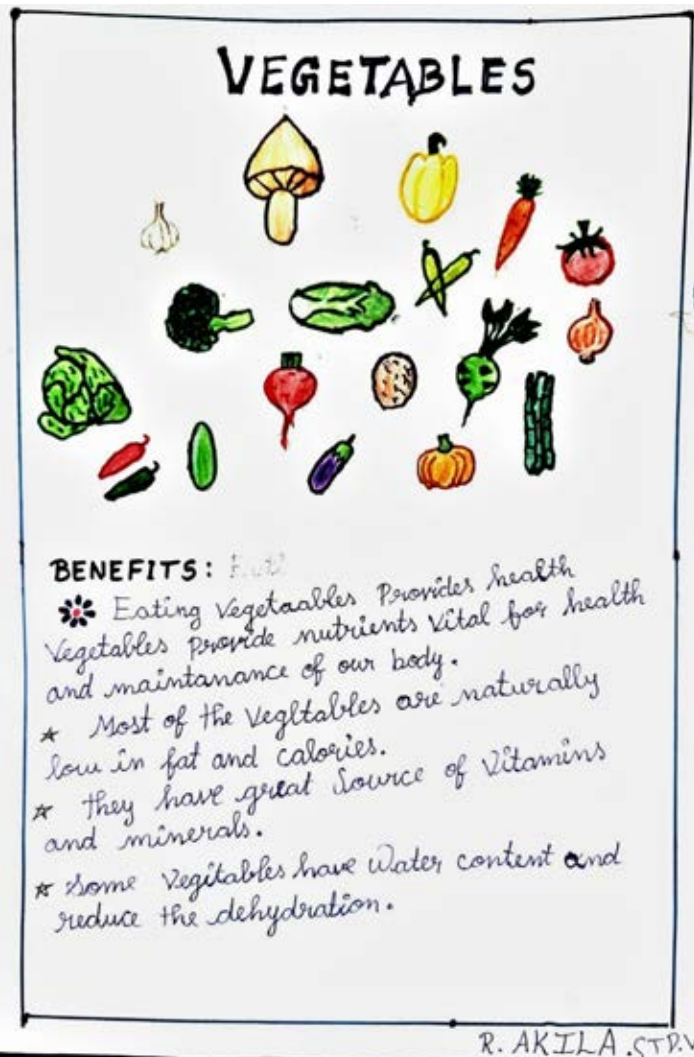 VEGETABLES
BENEFITS:
Eating Vegetaables Provides health
Vegetables provide nutrients vital for health
and maintanance of our body.
Most of the Vegltables are naturally
low in fat and calories.
they have great Source of Vitamins
and minerals.
Some Vegitables have Water content and
reduce the dehydration.
R. AKILA. STD.V